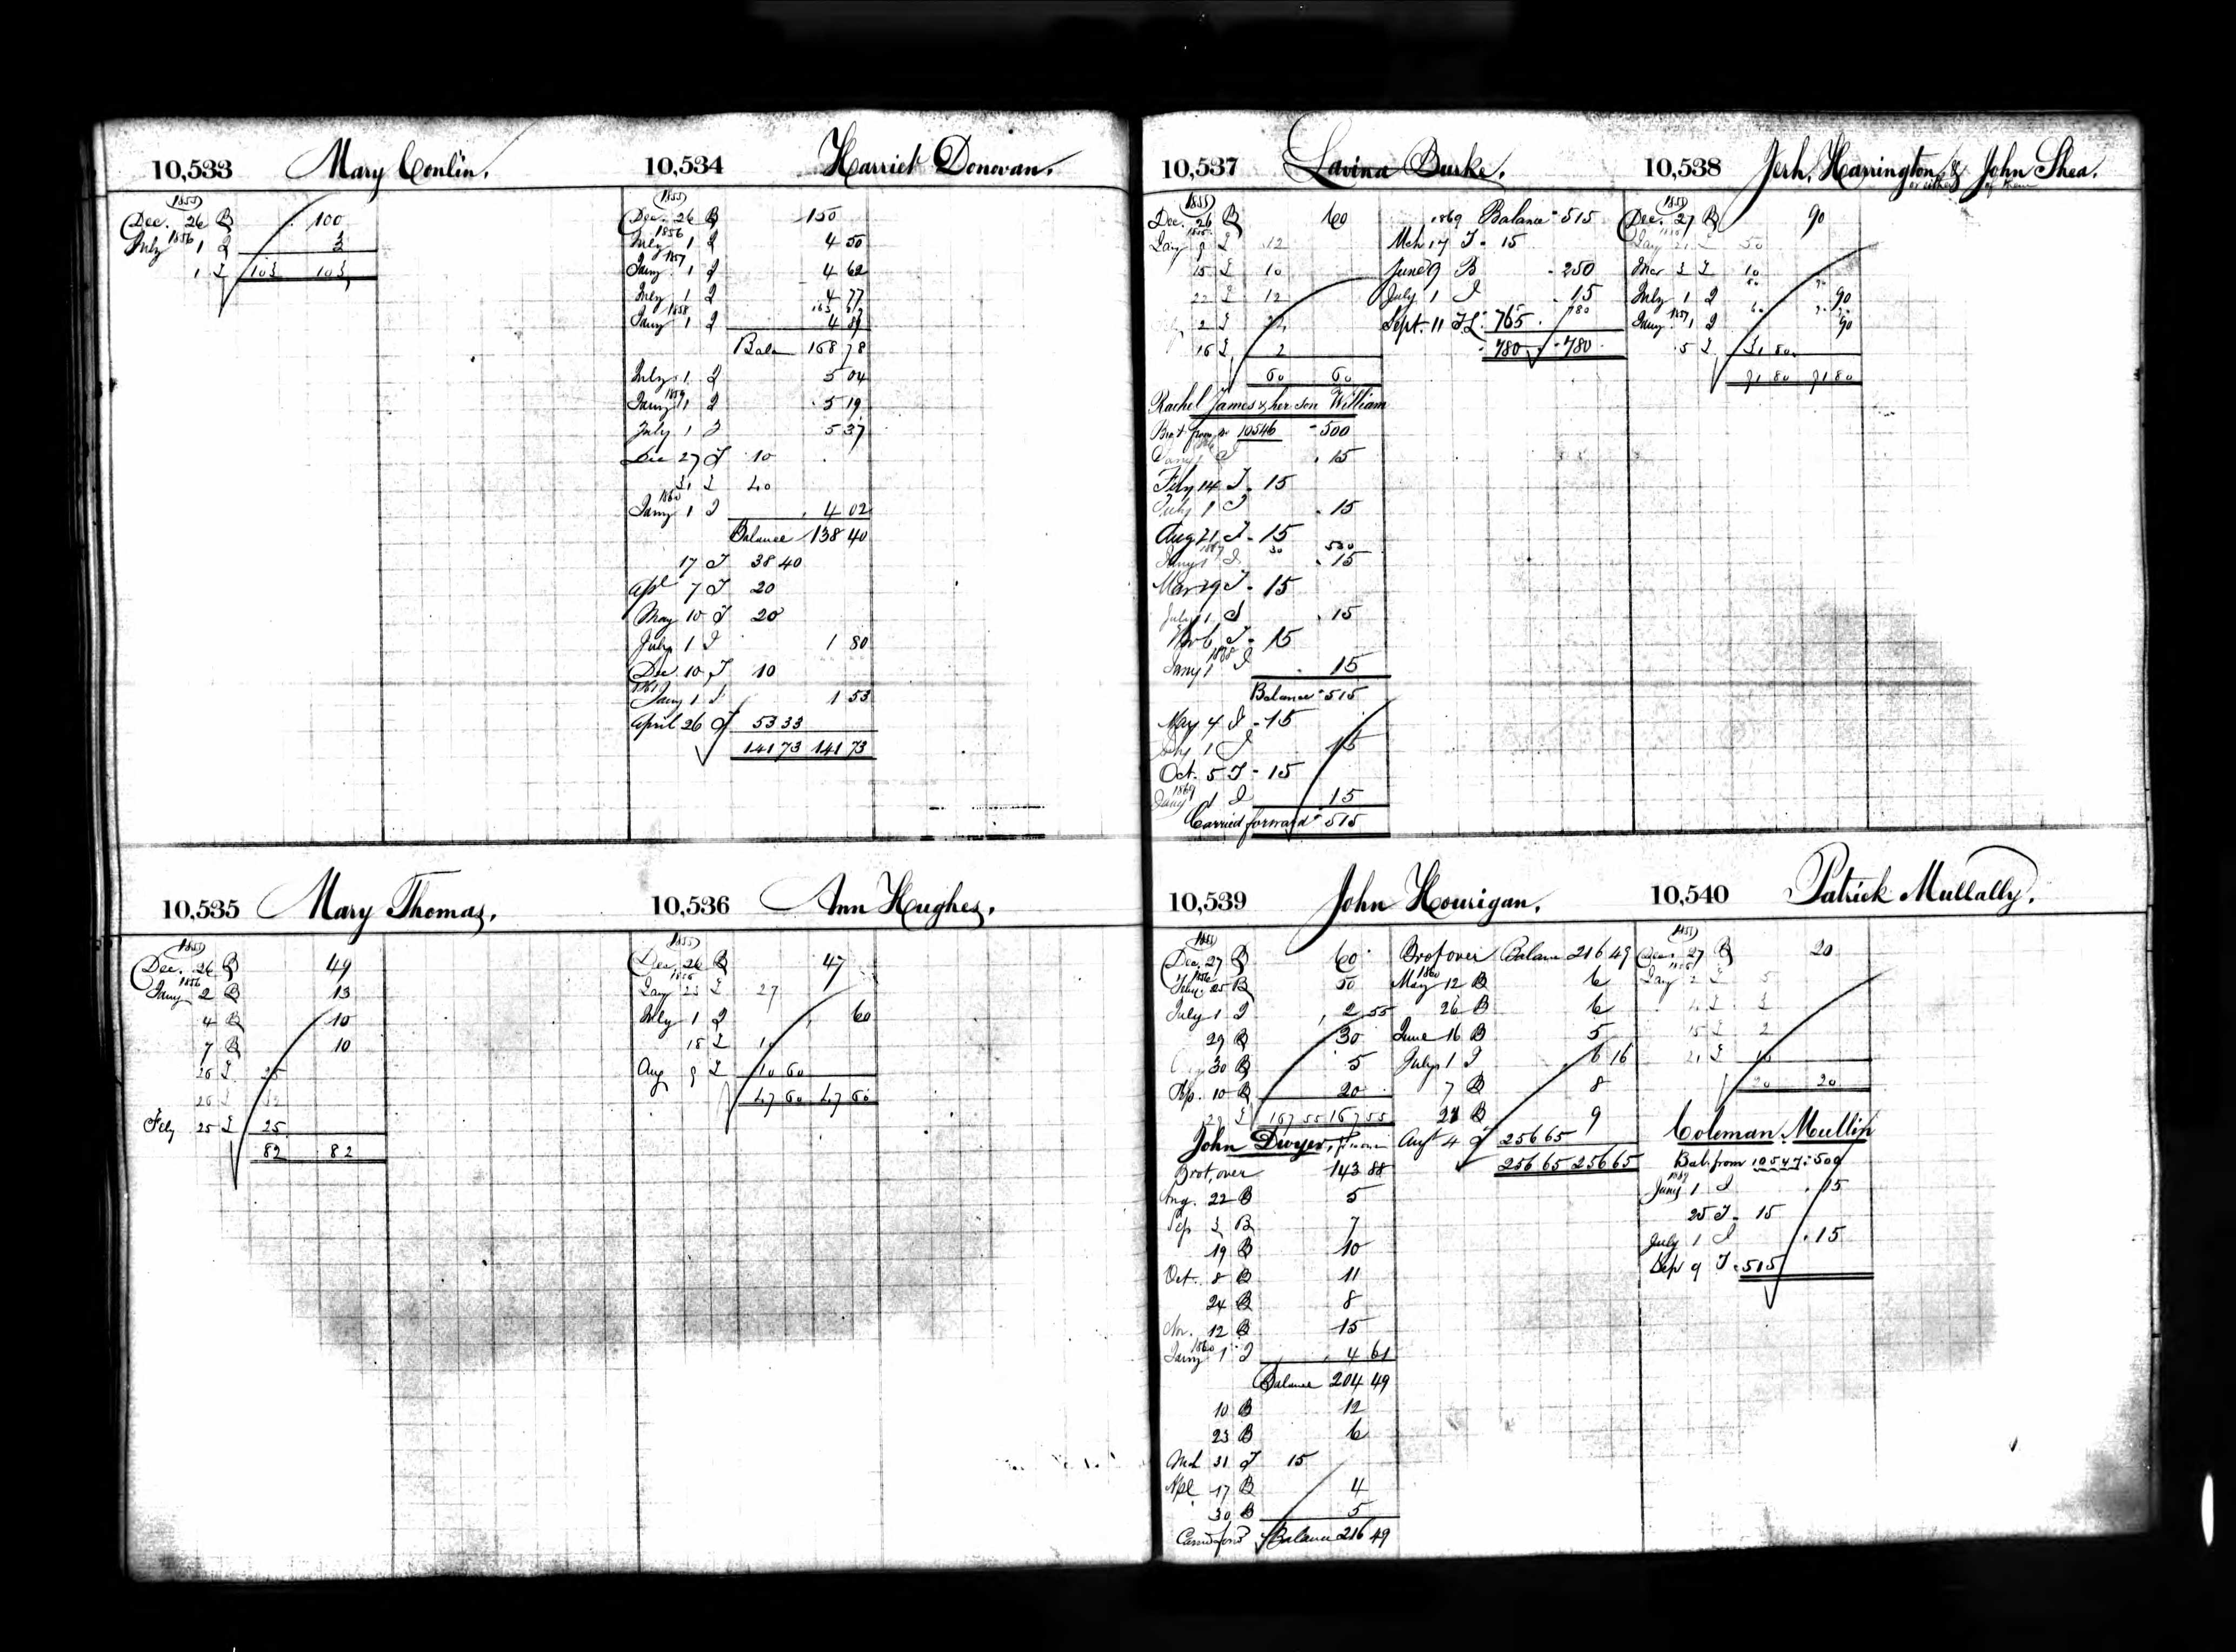 10,533 Mary Conlin.
(1855)
Dec. 26 B 100
July 1856 1 I 3
1 T 103 103
10,534 Harriet Donovan.
(1855)
Dec. 26 B 150
1856
July 1 I 4 50
1857
Jany 1 I 4 62
July 1 I 4 77
1858
Jany 1 I 4 89
Bala 168 78
July 1 I 5 04
1859
Jany 1 I 5 19
July 1 I 5 37
Dec 27 T 10
31 T 40
1860
Jany 1 I 4 02
Balance 138 40
17 T 38 40
Apl 7 T 20
May 10 T 20
July 1 I 1 80
Dec. 10 T 10
1861
Jany 1 I 1 53
April 26 T 53 33
141 73 141 73
10,535 Mary Thomas.
(1855)
Dec. 26 B 49
1856
Jany 2 B 13
4 B 10
7 B 10
25
Feby 25 T 25
82 82
10,536 Ann Hughes.
(1855)
Dec. 26 B 47
Jany 23 T 27
July 1 I 60
18 T 10
Aug 9 T 10 60
47 60 47 60
10,537 Lavina Burke.
(1855)
Dec. 26 B 60
Jany 9 T 12
15 T 10
22 T 12
2 T
16 T 2
60 60
Rachel James & her son William
Brot from 10546 500
15
Feby 14 T 15
July 1 I 15
Aug 21 T 15
30 530
1867
Jany 1 I 15
Mar 29 T 15
July 1 I 15
Nov 6 T 15
1868
Jany 1 I 15
Balance 515
May 4 T 15
July 1 I 15
Oct. 5 T 15
1869
Jany 1 I 15
Carried forward 515
1869 Balance 515
Mch 17 T 15
June 9 B 250
July 1 I 15
780
Sept. 11 T 765
780 780
10,538 Jerh. Harrington & John Shea.
or either of them
(1855)
Dec. 27 B 90
Jany 21 T 50
Mar 3 T 10
July 1 I 90
1857
Jany 1 I 90
5 T 31 80
91 80 91 80
10,539 John Hourigan.
(1855)
Dec. 27 B 60
1856
25 B 50
July 1 I 2 55
29 B 30
30 B 5
Sep. 10 B 20
29 T 167 55 167 55
John Dwyer,
Brot. over 143 88
Aug. 22 B 5
Sep 3 B 7
19 B 10
Oct. 8 B 11
24 B 8
Nov. 12 B 15
1860
Jany 1 I 4 61
Balance 204 49
10 B 12
23 B 6
Mch 31 T 15
Apl 17 B 4
30 B 5
Carrd ford Balance 216 49
Brot over Balance 216 49
1860
May 12 B 6
26 B 6
June 16 B 5
July 1 I 6 16
7 B 8
21 B 9
Augt 4 T 256 65
256 65 256 65
10,540 Patrick Mullally.
(1855)
Dec. 27 B 20
Jany 2 T 5
4 T 3
15 T 2
21 T 10
20 20
Coleman Mullin
Bal. from 10547 500
1869
Jany 1 I 15
25 T 15
July 1 I 15
Sep 9 T 515